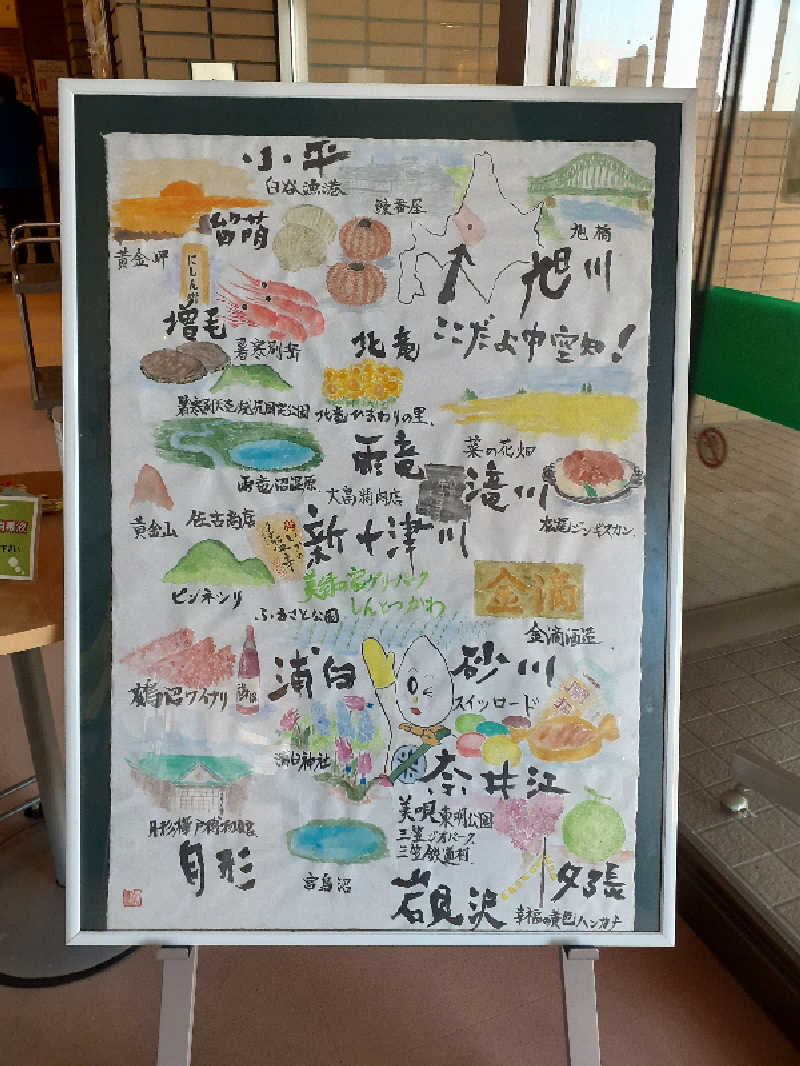 小平
臼谷漁港
鰊番屋
旭橋
留萌
黄金岬
旭川
増毛
暑寒別岳
北竜
ここだよ中空知!
暑寒別天売焼尻国定公園
北竜ひまわりの里
菜の花畑
雨竜沼湿原
雨竜
大畠精肉店
滝川
松尾ジンギスカン
黄金山
佐古商店
新十津川
ピンネシリ
ふるさと公園
しんとつかわ
金滴
金滴酒造
鶴沼ワイナリー
浦臼
砂川
スイーツロード
浦臼神社
奈井江
月形樺戸博物館
月形
美唄 東明公園
三笠ジオパーク
三笠鉄道村
宮島沼
岩見沢
夕張
幸福の黄色いハンカチ